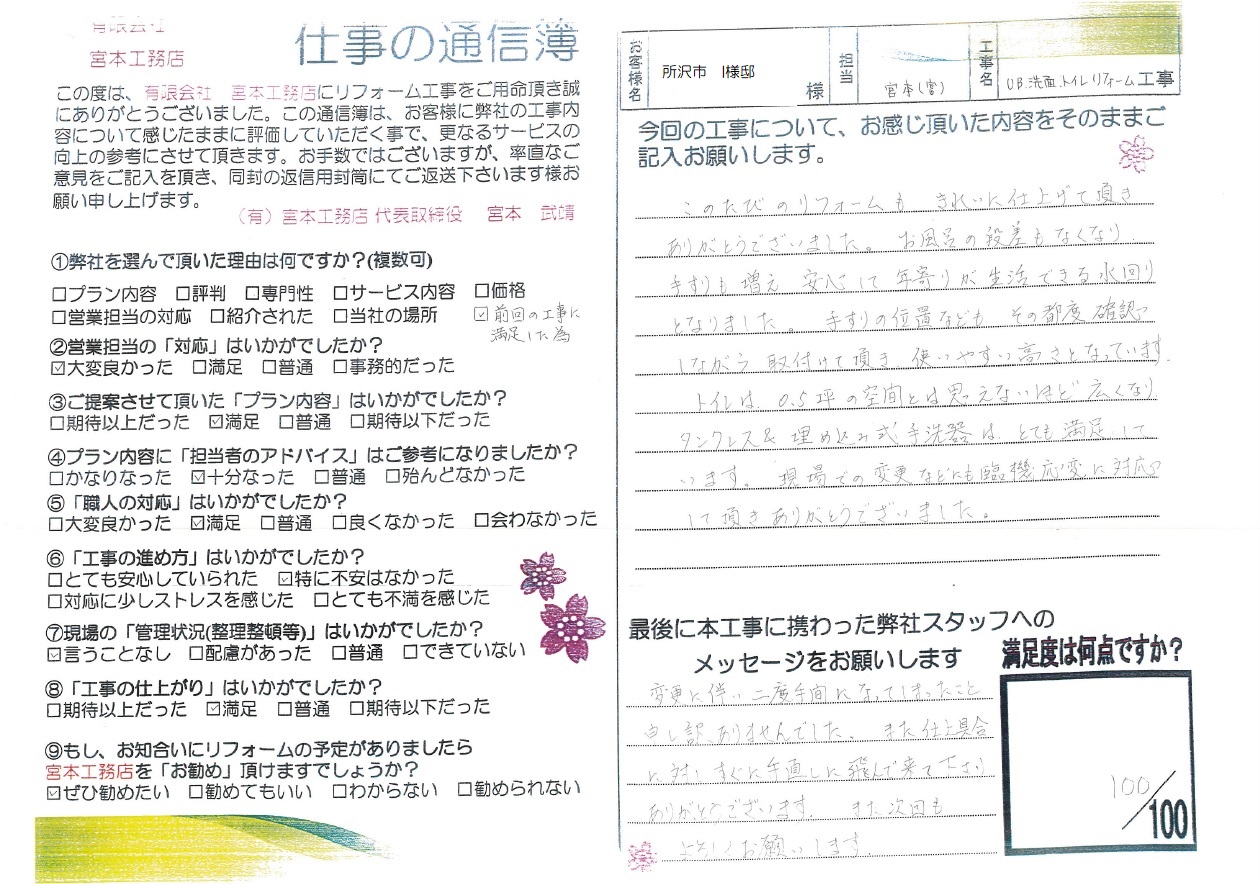 有限会社
宮本工務店
仕事の通信簿
この度は、有限会社 宮本工務店にリフォーム工事をご用命頂き誠
にありがとうございました。この通信簿は、お客様に弊社の工事内
容について感じたままに評価していただく事で、更なるサービスの
向上の参考にさせて頂きます。お手数ではございますが、率直なご
意見をご記入を頂き、同封の返信用封筒にてご返送下さいます様お
願い申し上げます。
(有)宮本工務店 代表取締役 宮本 武靖
①弊社を選んで頂いた理由は何ですか?(複数可)
□プラン内容 □評判 □専門性 □サービス内容 □価格
□営業担当の対応 □紹介された □当社の場所 ☑前回の工事に
満足した為
②営業担当の「対応」はいかがでしたか?
☑大変良かった □満足 □普通 □事務的だった
③ご提案させて頂いた「プラン内容」はいかがでしたか?
□期待以上だった ☑満足 □普通 □期待以下だった
④プラン内容に「担当者のアドバイス」はご参考になりましたか?
□かなりなった ☑十分なった □普通 □殆んどなかった
⑤「職人の対応」はいかがでしたか?
□大変良かった ☑満足 □普通 □良くなかった □会わなかった
⑥「工事の進め方」はいかがでしたか?
□とても安心していられた ☑特に不安はなかった
□対応に少しストレスを感じた □とても不満を感じた
⑦現場の「管理状況(整理整頓等)」はいかがでしたか?
☑言うことなし □配慮があった □普通 □できていない
⑧「工事の仕上がり」はいかがでしたか?
□期待以上だった ☑満足 □普通 □期待以下だった
⑨もし、お知合いにリフォームの予定がありましたら
宮本工務店を「お勧め」頂けますでしょうか?
☑ぜひ勧めたい □勧めてもいい □わからない □勧められない
お客様名 所沢市 I様邸 様 担当 宮本(雪) 工事名 UB.洗面.トイレリフォーム工事
今回の工事について、お感じ頂いた内容をそのままご
記入お願いします。
このたびのリフォームも きれいに仕上げて頂き
ありがとうございました。 お風呂の段差もなくなり
手すりも増え 安心して年寄りが生活できる水回り
となりました。 手すりの位置なども その都度確認
しながら取付けて頂き 使いやすい高さとなっています。
トイレは、0.5坪の空間とは思えないほど広くなり
タンクレス&埋め込み式手洗器は、とても満足して
います。 現場での変更などにも臨機応変に対応
して頂きありがとうございました。
最後に本工事に携わった弊社スタッフへの
メッセージをお願いします
変更に伴い二度手間になってしまったこと
申し訳ありませんでした。 また仕上具合
に対しすぐに手直しに飛んで来て下さり
ありがとうございます。 また次回も
よろしくお願いします。
満足度は何点ですか?
100/100